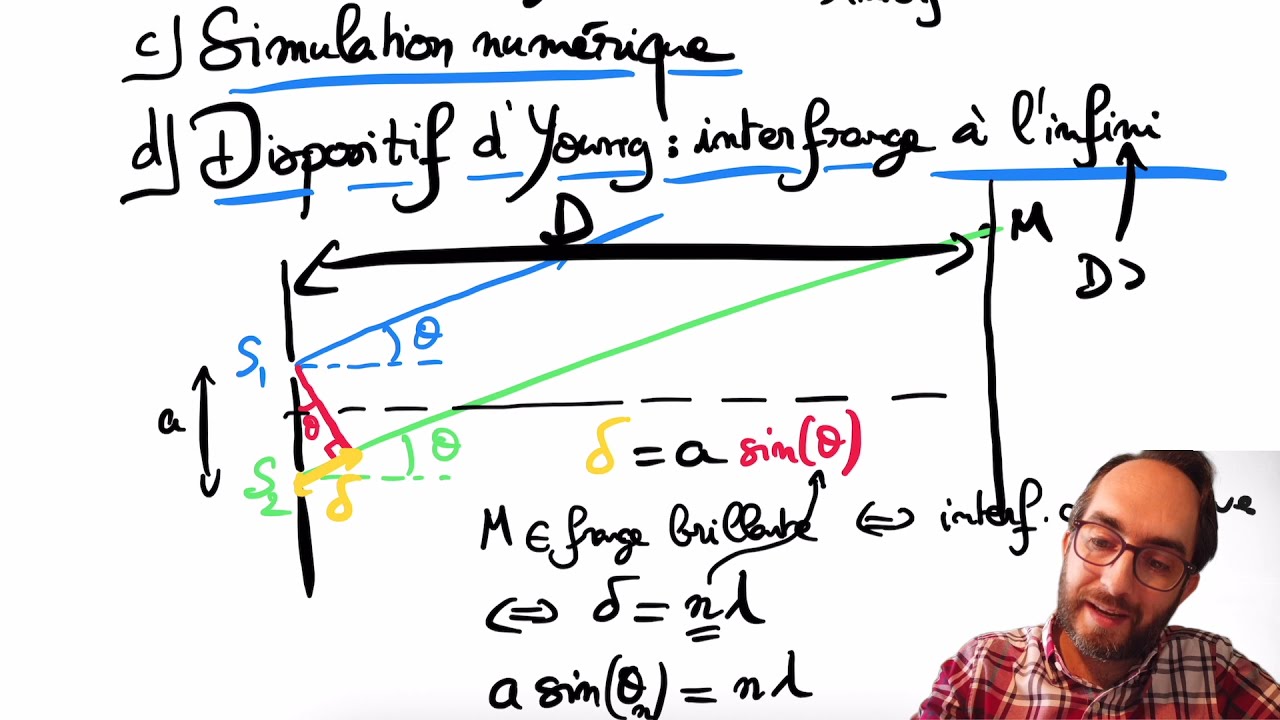 c) Simulation numérique
d) Dispositif d'Young : interfrange à l'infini
D
M
D >
S₁
θ
a
θ
θ
S₂
δ
δ = a sin(θ)
M ∈ frange brillante ⇔ interf.
⇔ δ = nλ
a sin(θₙ) = nλ